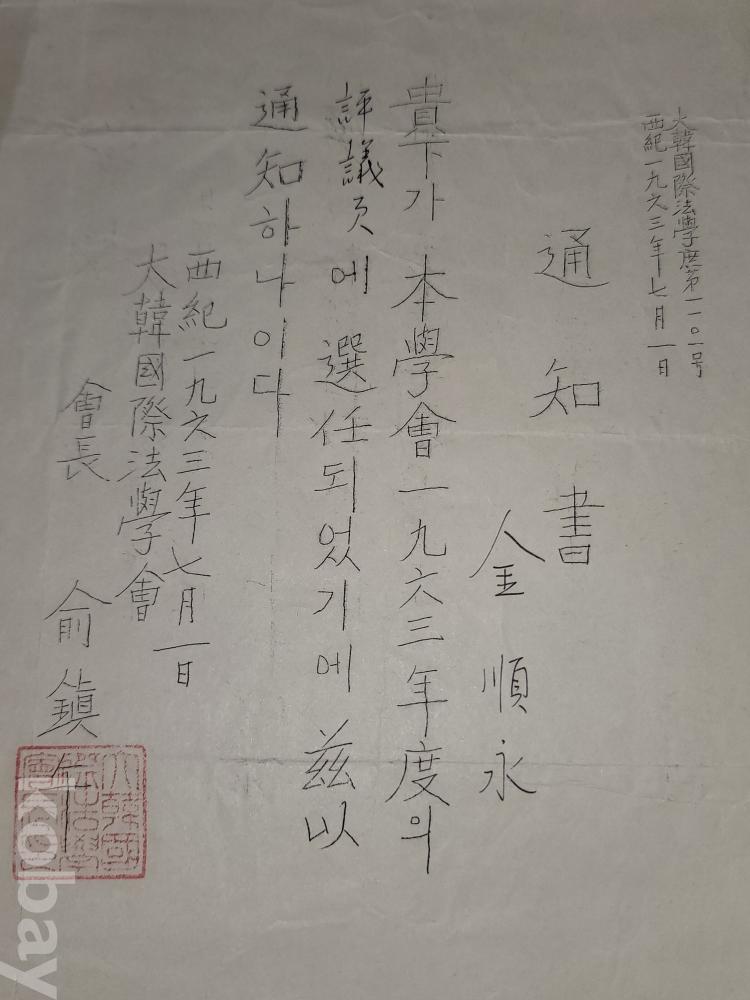 大韓國際法學庶第一一〇一号
西紀一九六三年七月一日
通知書
金順永
貴下가 本學會一九六三年度의
評議員에 選任되었기에 玆以
通知하나이다
西紀一九六三年七月一日
大韓國際法學會
會長 俞鎭午
kobay